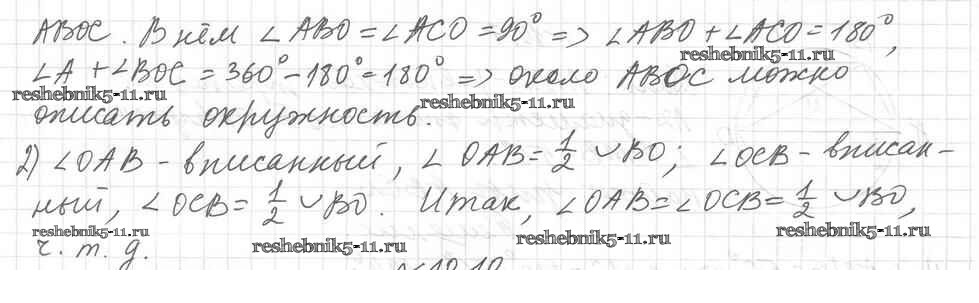 ABOC. В нём ∠ABO = ∠ACO = 90° => ∠ABO + ∠ACO = 180°,
reshebnik5-11.ru
∠A + ∠BOC = 360° - 180° = 180° => около ABOC можно
reshebnik5-11.ru reshebnik5-11.ru
описать окружность.
2) ∠OAB - вписанный, ∠OAB = 1/2 ◡BO; ∠OCB - вписан-
ный, ∠OCB = 1/2 ◡BO. Итак, ∠OAB = ∠OCB = 1/2 ◡BO,
reshebnik5-11.ru reshebnik5-11.ru reshebnik5-11.ru reshebnik5-11.ru
ч. т. д.